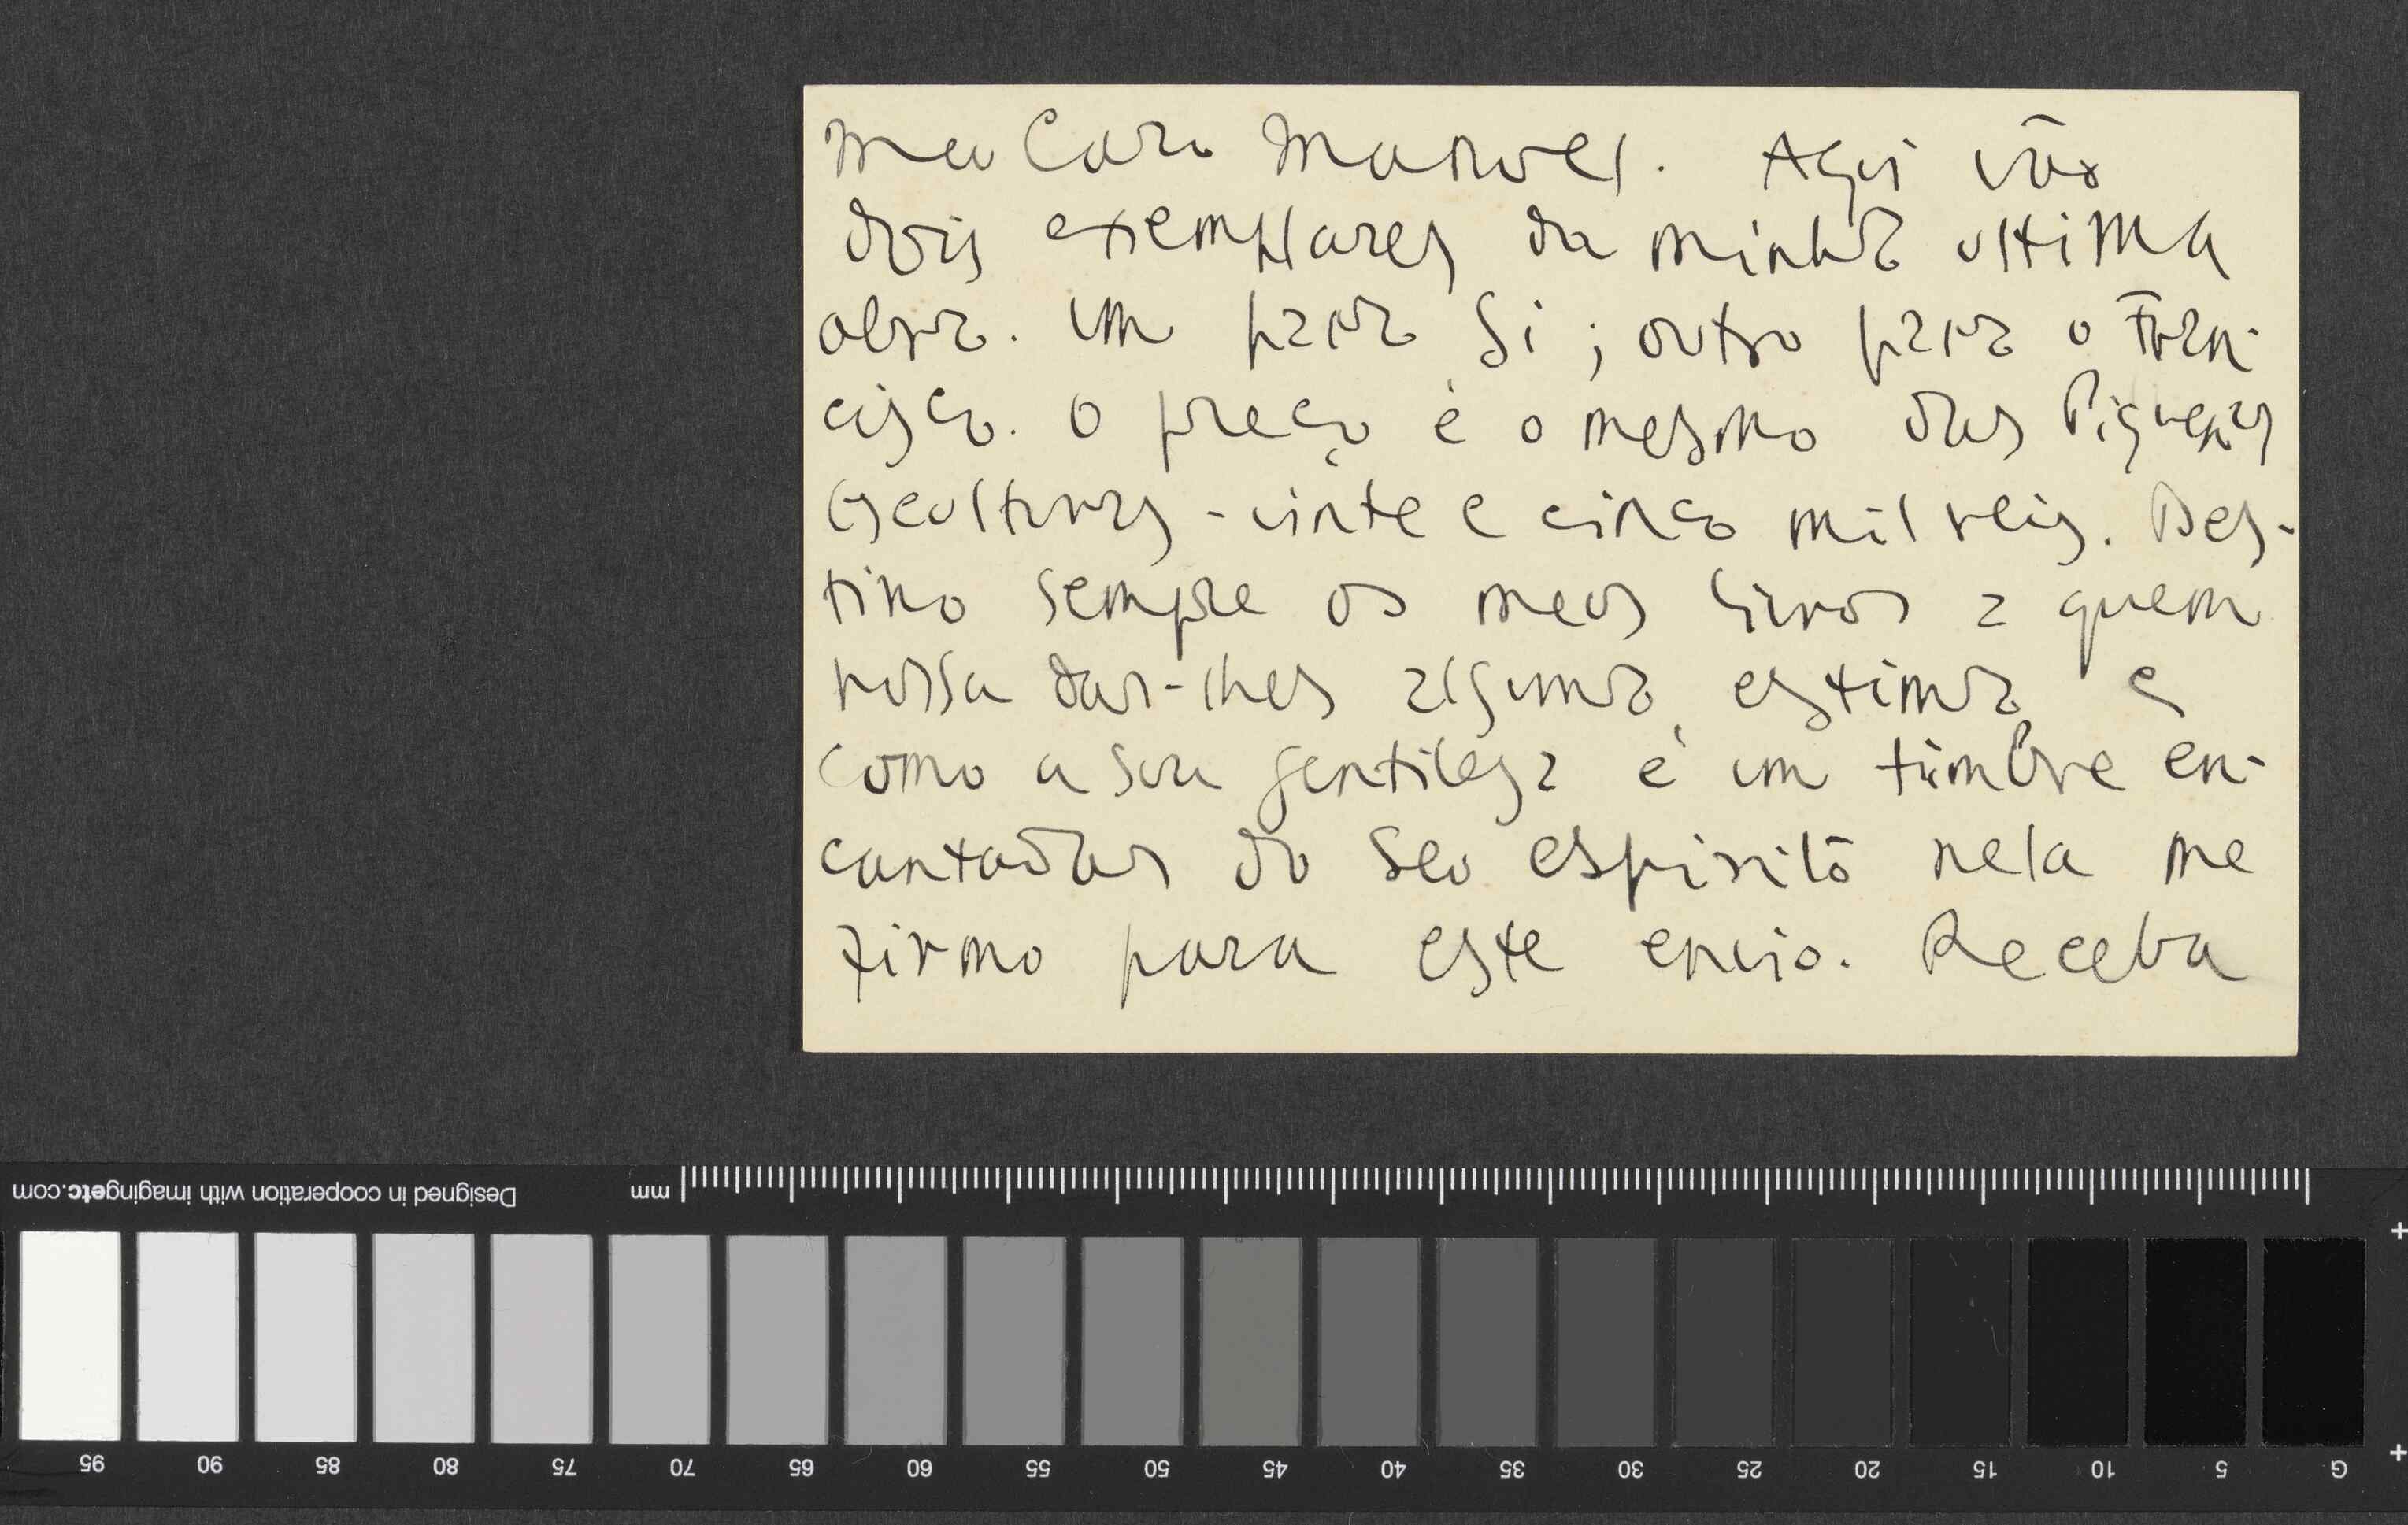 Meu Caro Manoel. Aqui vão
dois exemplares da minha ultima
obra. Um para Si; outro para o Fran-
cisco. O preço é o mesmo das Piquenas
Esculturas - vinte e cinco mil reis. Des-
tino sempre os meus livros a quem
possa dar-lhes alguma estima, e
como a sua gentileza é um timbre en-
cantador do seu espirito nela me
firmo para este envio. Receba
mm
Designed in cooperation with imagingetc.com
95 90 85 80 75 70 65 60 55 50 45 40 35 30 25 20 15 10 5 G